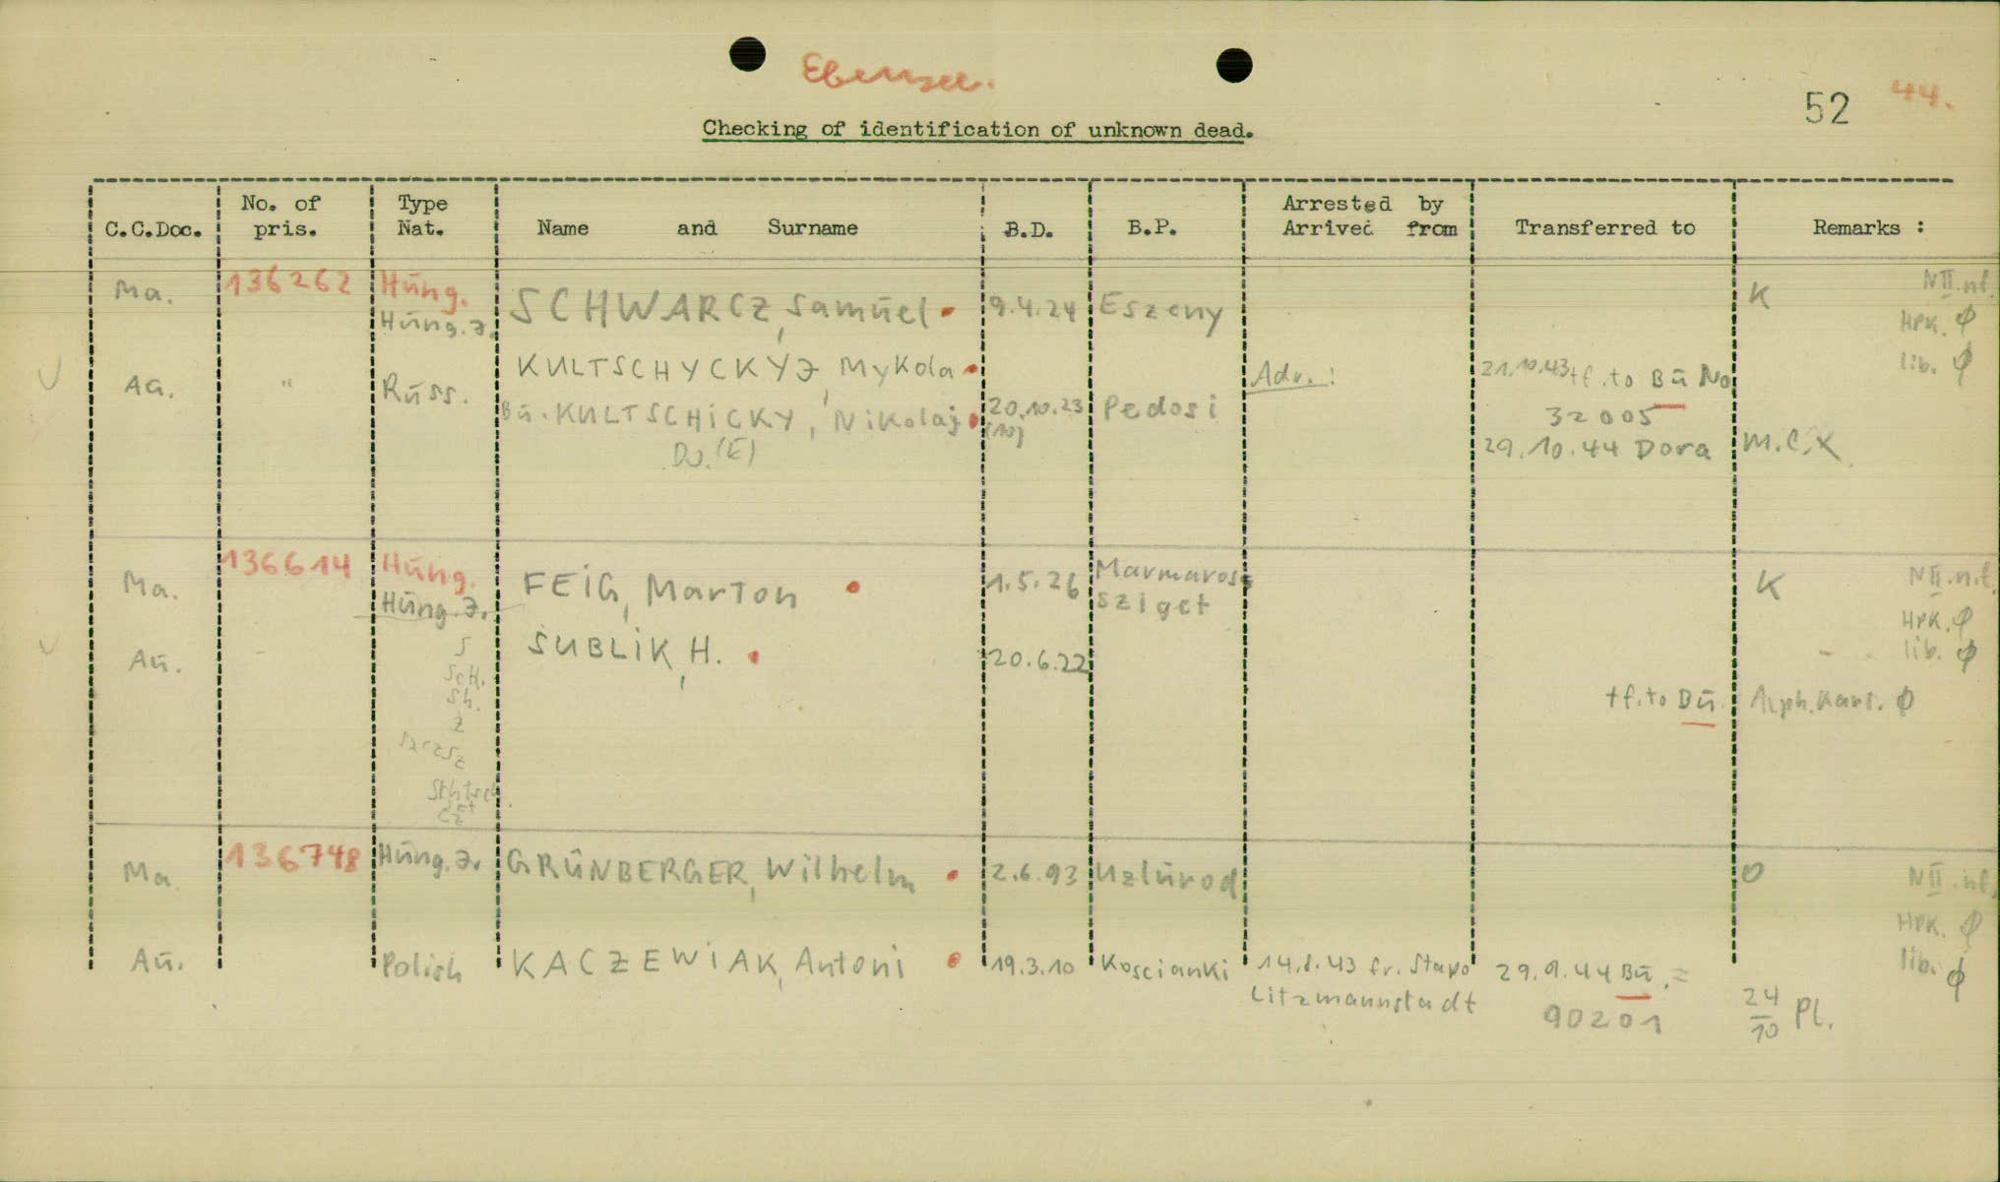 Ebensee.
52 44.
Checking of identification of unknown dead.
C.C.Doc. No. of pris. Type Nat. Name and Surname B.D. B.P. Arrested by Arrived from Transferred to Remarks :
Ma. 136262 Hung. SCHWARCZ, Samuel 9.4.24 Eszeny K NII.nf.
Hung.J. HPK. ϕ
lib. ϕ
Au. " Russ. KULTSCHYCKYJ, Mykola Adv.! 21.10.43 tf.to Bu No
Bu. KULTSCHiCKY, Nikolaj 20.10.23 Pedosi 32005
(10)
DJ.(E) 29.10.44 Dora M.C.X
136614 Hung.
Ma. Hung.J. FEiG, Marton 1.5.26 Marmaros K NII.n.f.
sziget HPK. ϕ
Au. SUBLiK, H. 20.6.22 lib. ϕ
S
Sch.
Sh.
Z
tf.to Bu. Alph.Kart. ϕ
Ma. 136748 Hung.J. GRÜNBERGER, Wilhelm 2.6.93 Uzlurod O NII.nf.
HPK. ϕ
lib. ϕ
Au. Polish KACZEWiAK, Antoni 19.3.10 Koscianki 14.8.43 fr. Stapo 29.9.44 Bu. =
Litzmannstadt 90201
24/10 Pl.